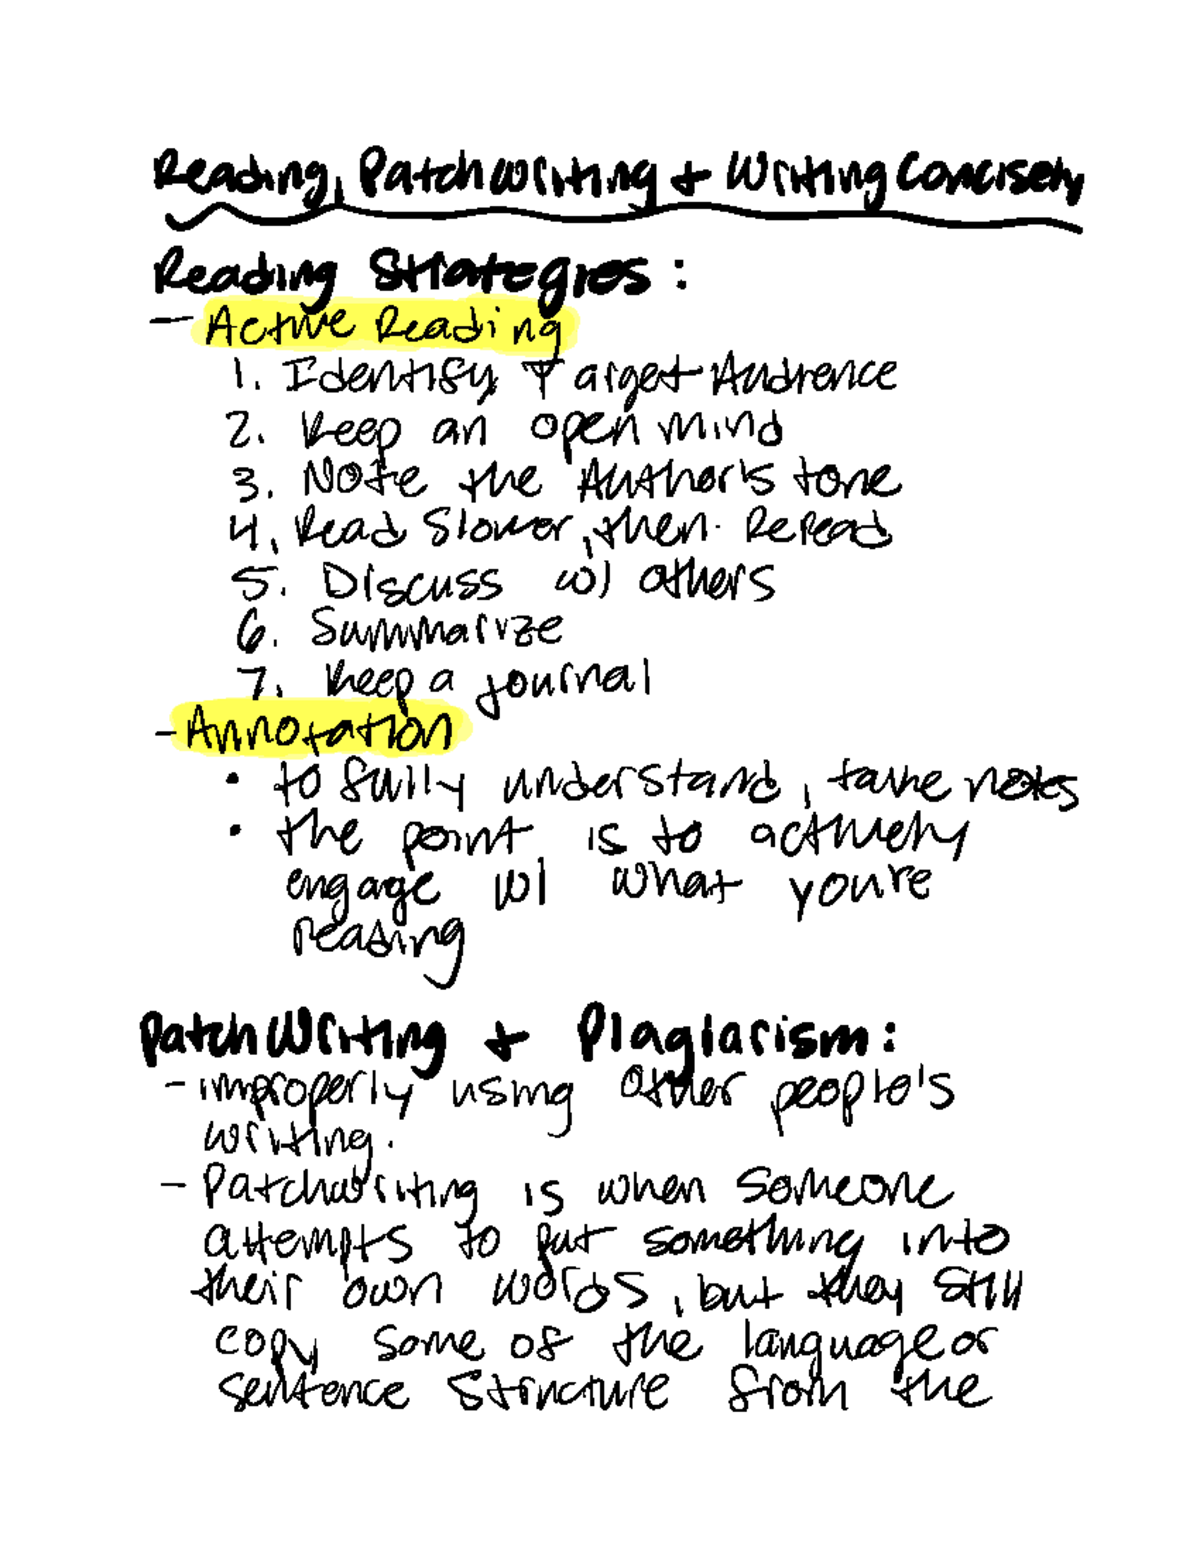 Reading, Patchwriting + Writing Concisely
Reading Strategies:
- Active Reading
1. Identify Target Audience
2. Keep an open mind
3. Note the Author's tone
4. Read Slower, then Reread
5. Discuss w/ others
6. Summarize
7. Keep a journal
- Annotation
• to fully understand, take notes
• the point is to actively
engage w/ what you're
reading
Patchwriting + Plagiarism:
- improperly using other people's
writing.
- Patchwriting is when someone
attempts to put something into
their own words, but they still
copy some of the language or
sentence structure from the